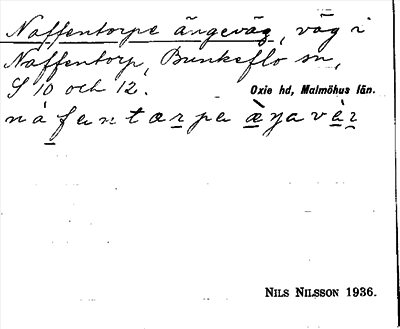 Naffentorps ängeväg, väg i
Naffentorp, Bunkeflo sn,
S 10 och 12. Oxie hd, Malmöhus län.
NILS NILSSON 1936.